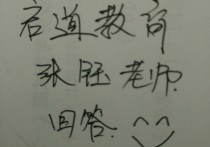 启道教育
张钰老师
回答.^^